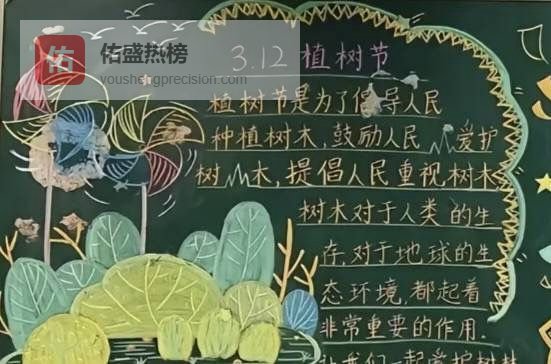 佑
佑盛热榜
youshengprecision.com
3.12 植树节
植树节是为了倡导人民
种植树木,鼓励人民爱护
树木,提倡人民重视树木
树木对于人类的生
存,对于地球的生
态环境,都起着
非常重要的作用.
让我们一起爱护树林